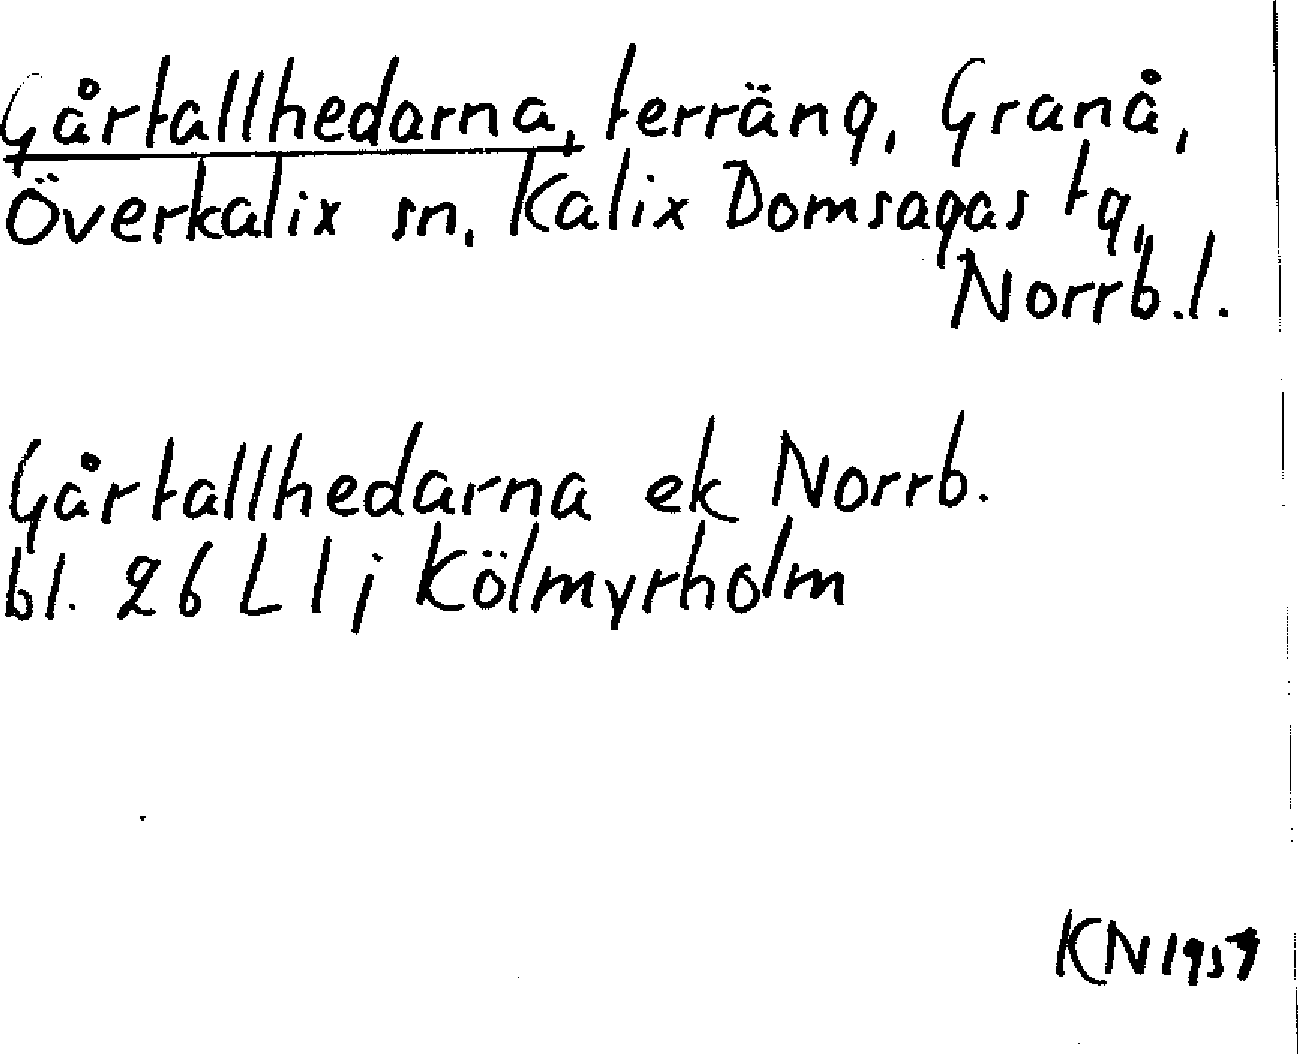 Gårtallhedarna, terräng, Granå,
Överkalix sn, Kalix Domsagas tg,
Norrb.l.
Gårtallhedarna ek Norrb.
bl. 26 L 1 j Kölmyrholm
KN 1957